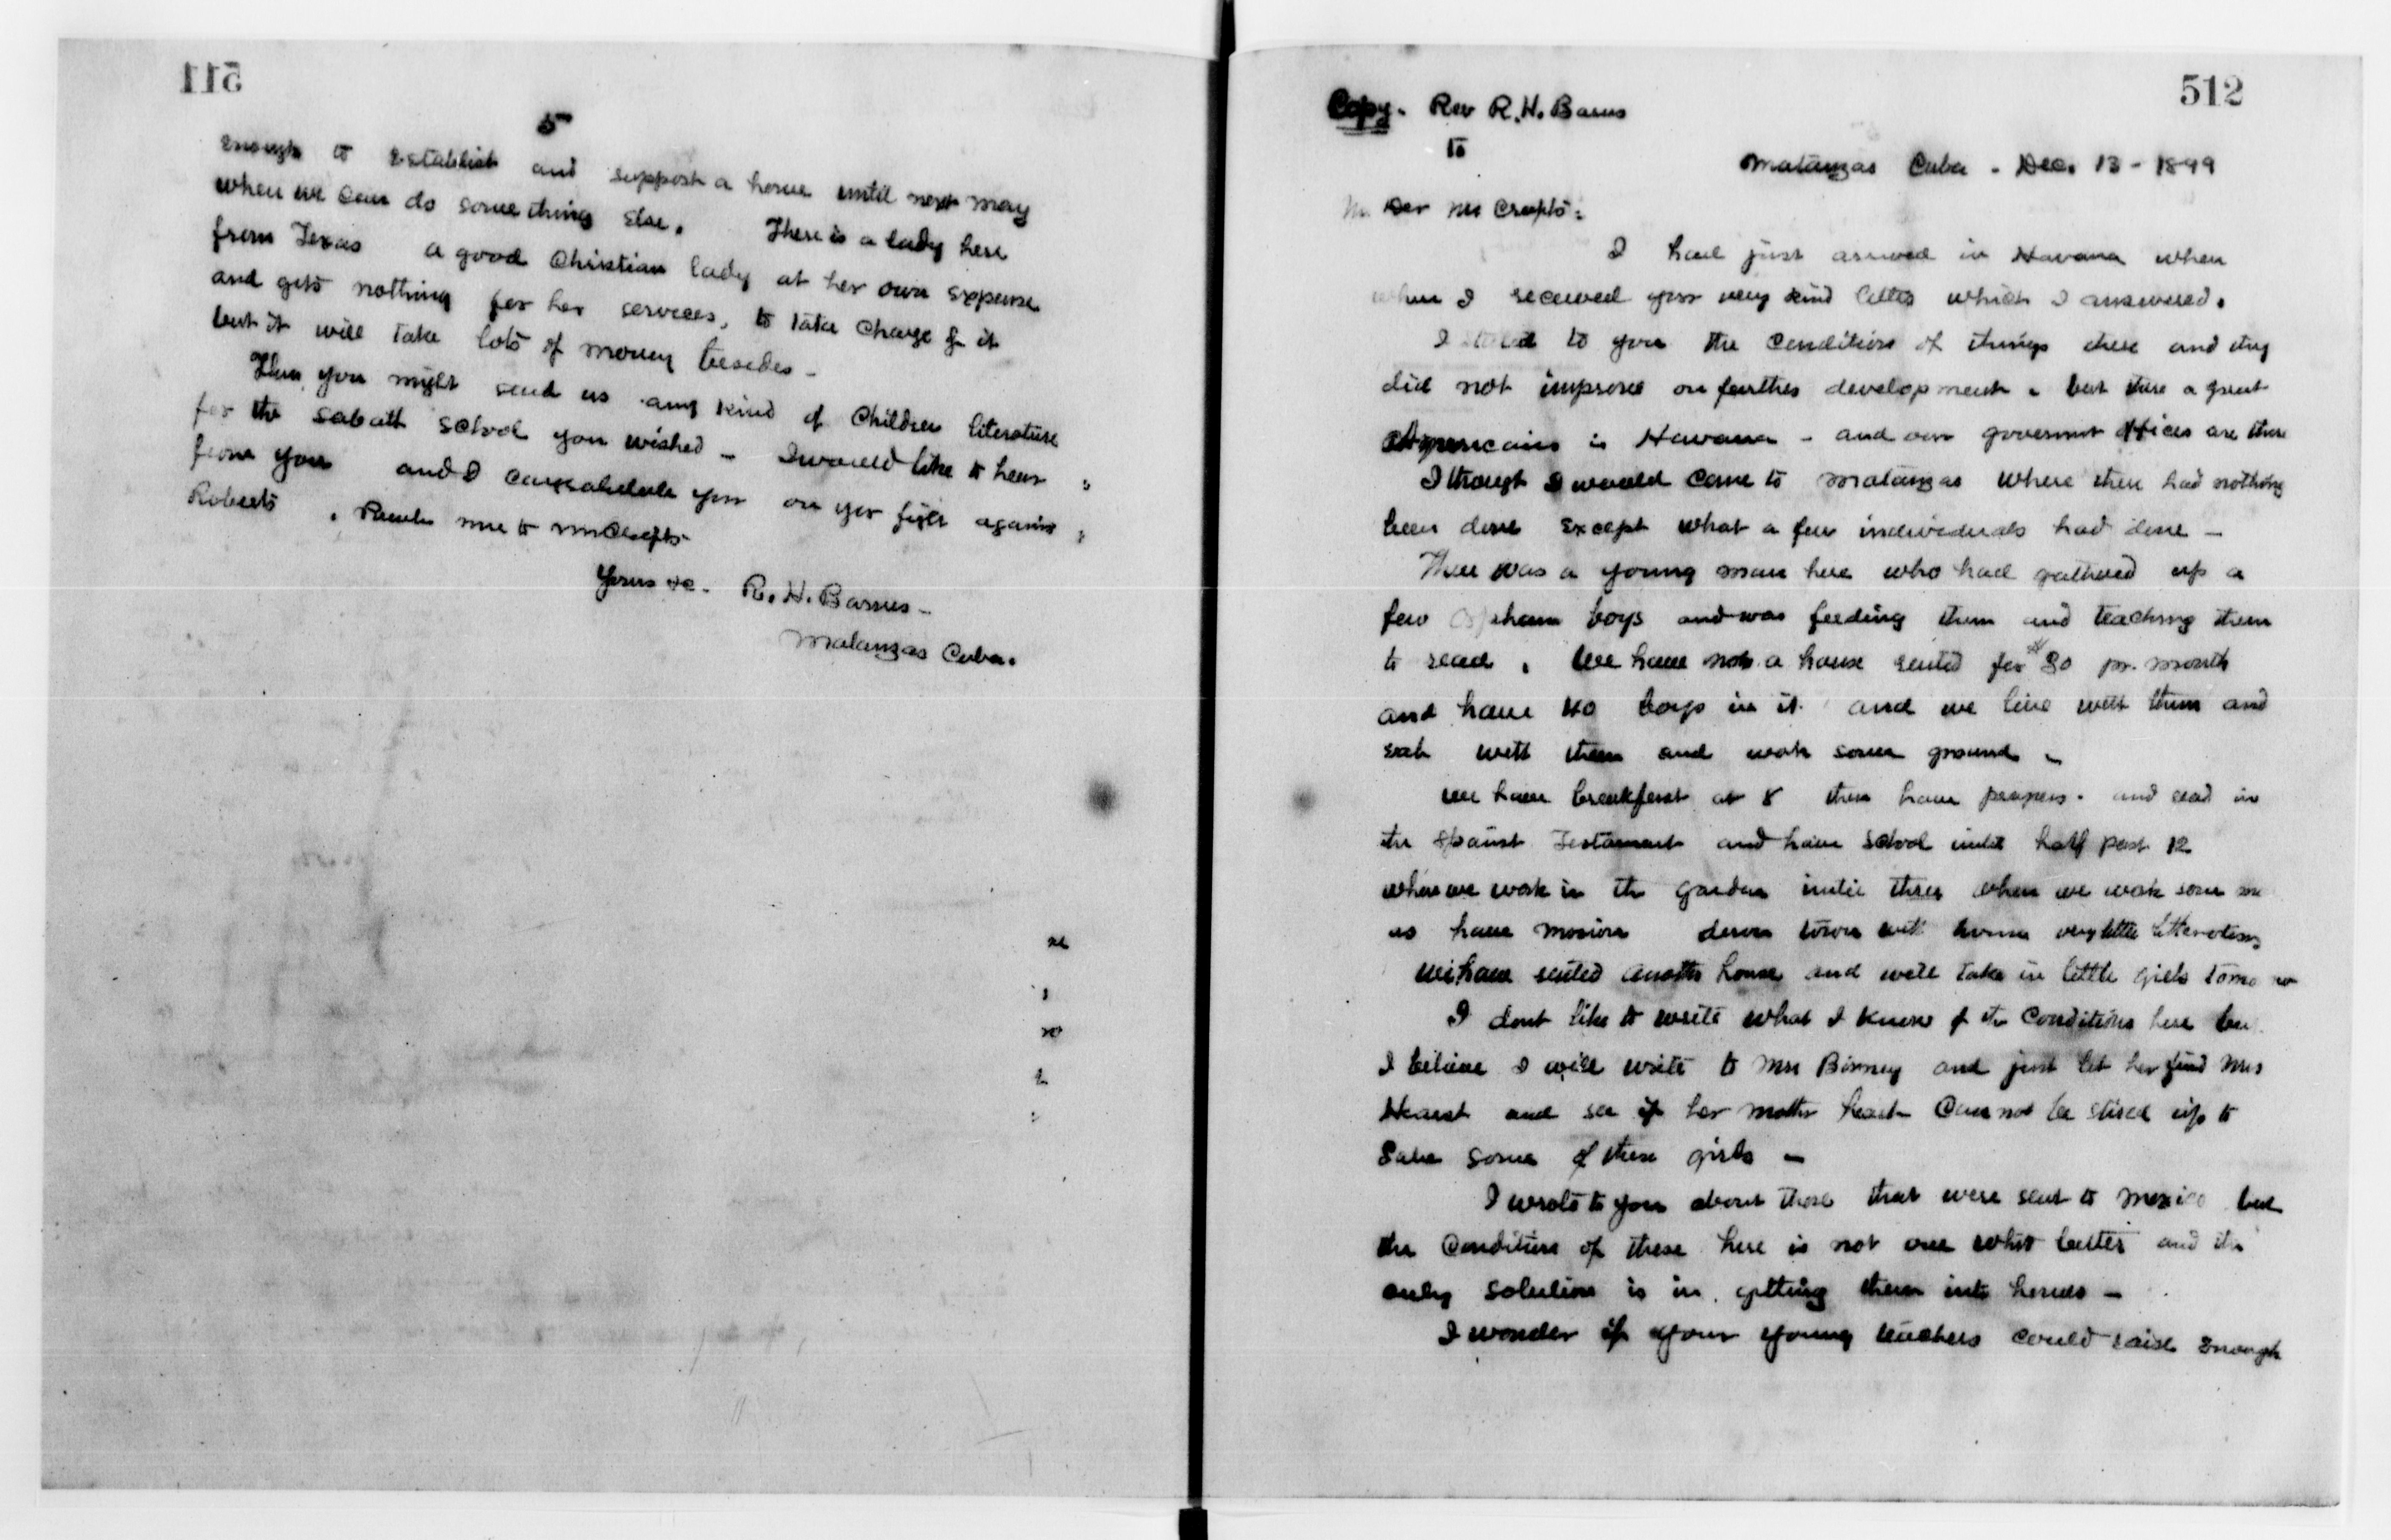 511
5
enough to establish and support a home until next may
when we can do some thing else. There is a lady here
from Texas a good Christian lady at her own expense
and gets nothing for her services, to take charge of it
but it will take lots of money besides -
Then you might send us any kind of Children literature
for the sabath school you wished - I would like to hear
from you and I you on yor fight against
Roberts . me to
Yours &c. R. H. Barnes -
Matanzas Cuba.
512
Copy. Rev R. H. Barnes
To
Matanzas Cuba - Dec. 13 - 1899
I had just arrived in Havana when
when I received your very kind letter which I answered.
I stated to you the condition of things there and they
did not improve on further development - but there a great
Americains in Havana - and our goverment offices are there
I though I would come to Matanzas where there had nothing
been done except what a few individuals had done -
There was a young man here who had gathered up a
few orphan boys and was feeding them and teaching them
to read . We have now a house rented for $ 80 pr. month
and have 40 boys in it and we live with them and
eat with them and work some ground -
we have breakfast at 8 then have prayers - and read in
the Spanist Testament and have school until half past 12
when we work in the garden until three when we work some
as have mision down town with very little
we have rented another house and will take in little girls
I dont like to write what I know of the conditions here but
I believe I will write to Mrs Birney and just let her find Mrs
Hearst and see if her mother heart can not be stired up to
Save some of these girls -
I wrote to you about those that were sent to Mexico but
the condition of these here is not one whit better and the
only solution is in getting them into homes -
I wonder if your young teachers could raise enough